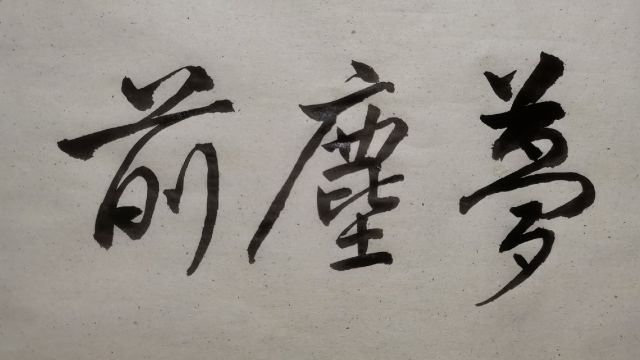 夢塵前